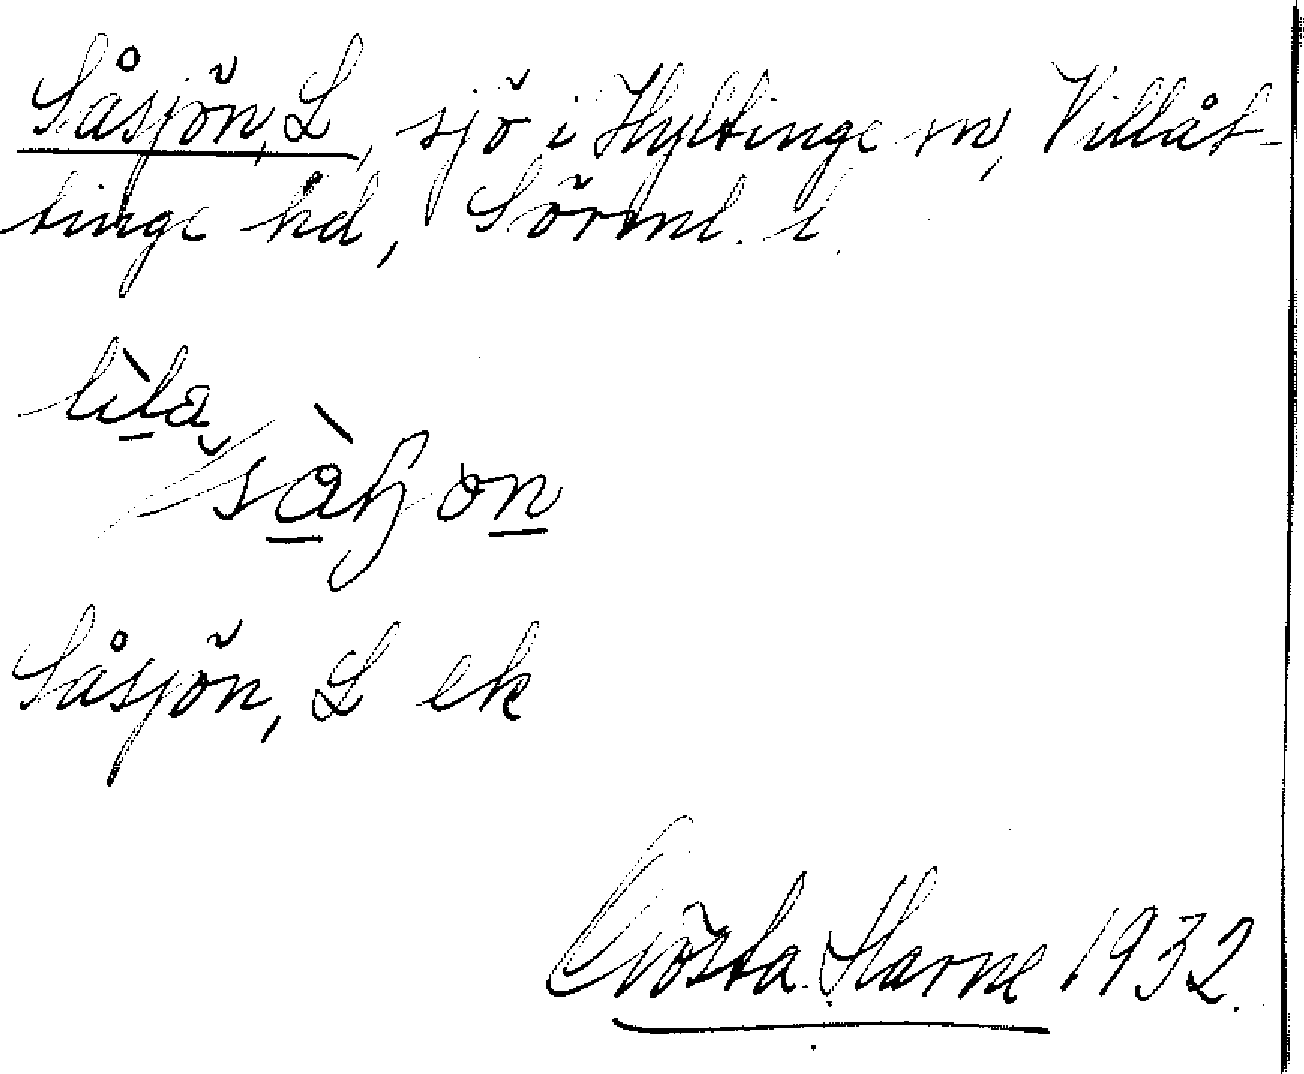 Såsjön, L, sjö i Hyltinge sn, Villåt-
tinge hd, Sörml. l.
lìla
sàʃʒon
Såsjön, L ek
Gösta Harne 1932.